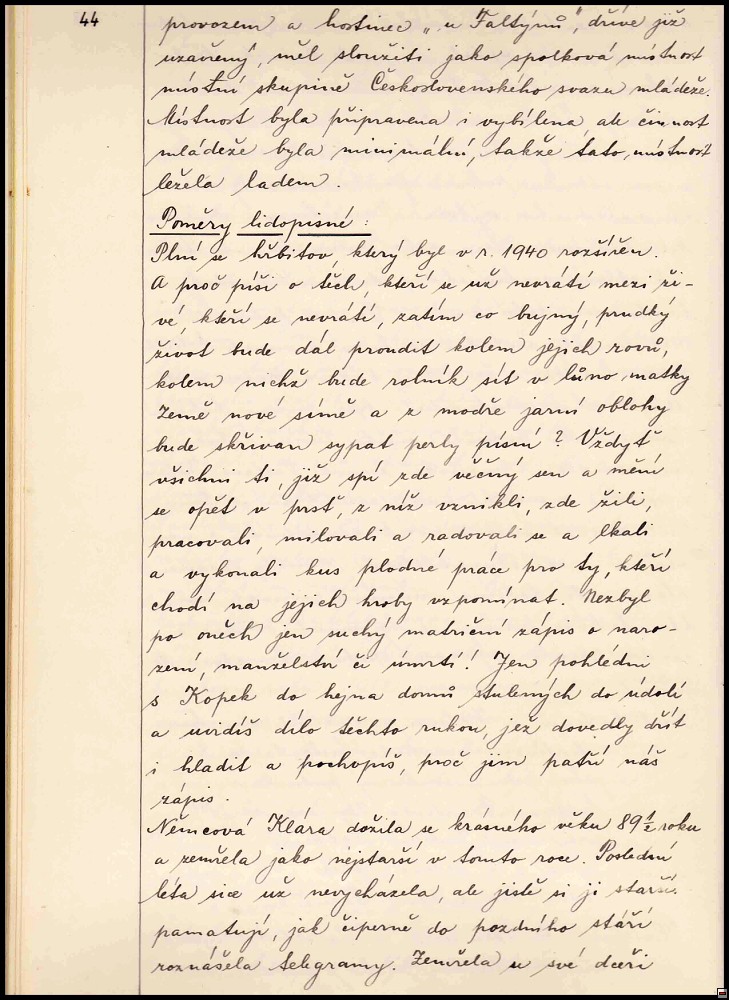 44
provozem a hostinec „u Faltýnů", dříve již
uzavřený, měl sloužiti jako spolková místnost
místní skupině Československého svazu mládeže.
Místnost byla připravena i vybílena, ale činnost
mládeže byla minimální, takže tato místnost
ležela ladem.
Poměry lidopisné:
Plní se hřbitov, který byl v r. 1940 rozšířen.
A proč píši o těch, kteří se už nevrátí mezi ži-
vé, kteří se nevrátí, zatím co bujný, prudký
život bude dál proudit kolem jejich rovů,
kolem nichž bude rolník sít v lůno matky
Země nové símě a z modře jarní oblohy
bude skřivan sypat perly písní? Vždyť
všichni ti, již spí zde věčný sen a mění
se opět v prsť, z níž vznikli, zde žili,
pracovali, milovali a radovali se a lkali
a vykonali kus plodné práce pro ty, kteří
chodí na jejich hroby vzpomínat. Nezbyl
po oněch jen suchý matriční zápis o naro-
zení, manželství či úmrtí! Jen pohlédni
s Kopek do hejna domů stulených do údolí
a uvidíš dílo těchto rukou, jež dovedly dřít
i hladit a pochopíš, proč jim patří náš
zápis.
Němcová Klára dožila se krásného věku 89 1/2 roku
a zemřela jako nejstarší v tomto roce. Poslední
léta sice už nevycházela, ale jistě si ji starší
pamatují, jak čiperně do pozdního stáří
roznášela telegramy. Zemřela u své dceři